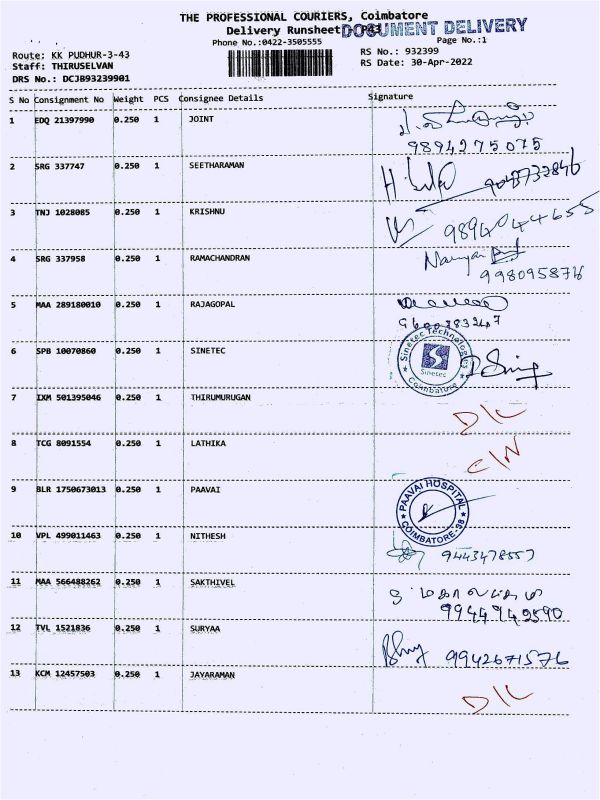 THE PROFESSIONAL COURIERS, Coimbatore
Delivery Runsheet P43
DOCUMENT DELIVERY
Phone No.:0422-3505555
Page No.:1
Route: KK PUDHUR-3-43
RS No.: 932399
Staff: THIRUSELVAN
RS Date: 30-Apr-2022
DRS No.: DCJB93239901
S No Consignment No Weight PCS Consignee Details Signature
1 EDQ 21397990 0.250 1 JOINT
9894275075
2 SRG 337747 0.250 1 SEETHARAMAN
3 TNJ 1028085 0.250 1 KRISHNU
9894044655
4 SRG 337958 0.250 1 RAMACHANDRAN
9980958716
5 MAA 289180010 0.250 1 RAJAGOPAL
6 SPB 10070860 0.250 1 SINETEC
Sinetec Technologies
S
Sinetec
Coimbatore
7 IXM 501395046 0.250 1 THIRUMURUGAN
D/L
8 TCG 8091554 0.250 1 LATHIKA
C/N
9 BLR 1750673013 0.250 1 PAAVAI
PAAVAI HOSPITAL
COIMBATORE-38
10 VPL 499011463 0.250 1 NITHESH
9443478557
11 MAA 566488262 0.250 1 SAKTHIVEL
9944942590
12 TVL 1521836 0.250 1 SURYAA
9942671576
13 KCM 12457503 0.250 1 JAYARAMAN
D/L